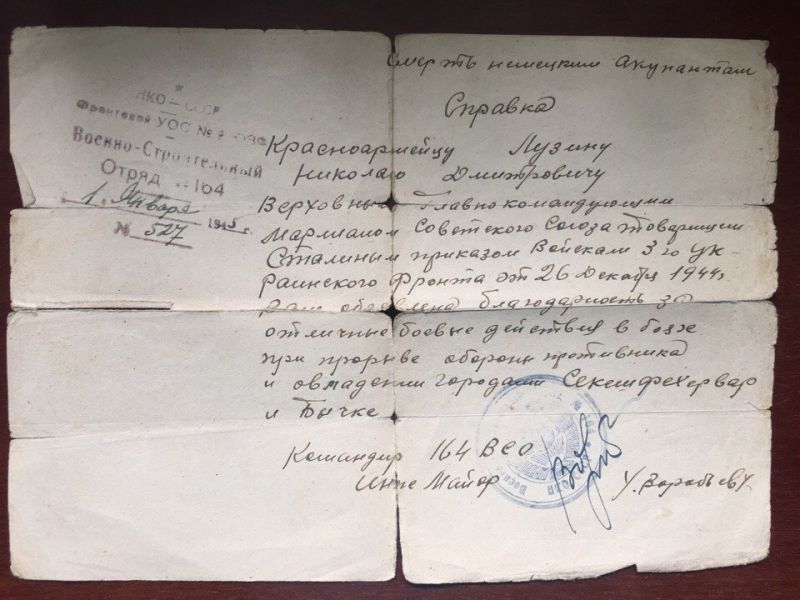 Смерть немецким акупантам
НКО – СССР
Фронтовой УОС №
Военно-Строительный
Отряд 164
1. Января 1945 г.
№ 527
Справка
Красноармейцу Лузину
Николаю Дмитровичу
Верховным Главнокомандующим
Маршалом Советского Союза товарищем
Сталиным приказом Войскам 3го Ук-
раинского Фронта от 26 Декабря 1944г
Вам объявлена благодарность за
отличные боевые действия в боях
при прорыве обороны противника
и овладении городами Секешфехервар
и Бычке
Командир 164 ВСО
Инж Майор У. Воробьев У